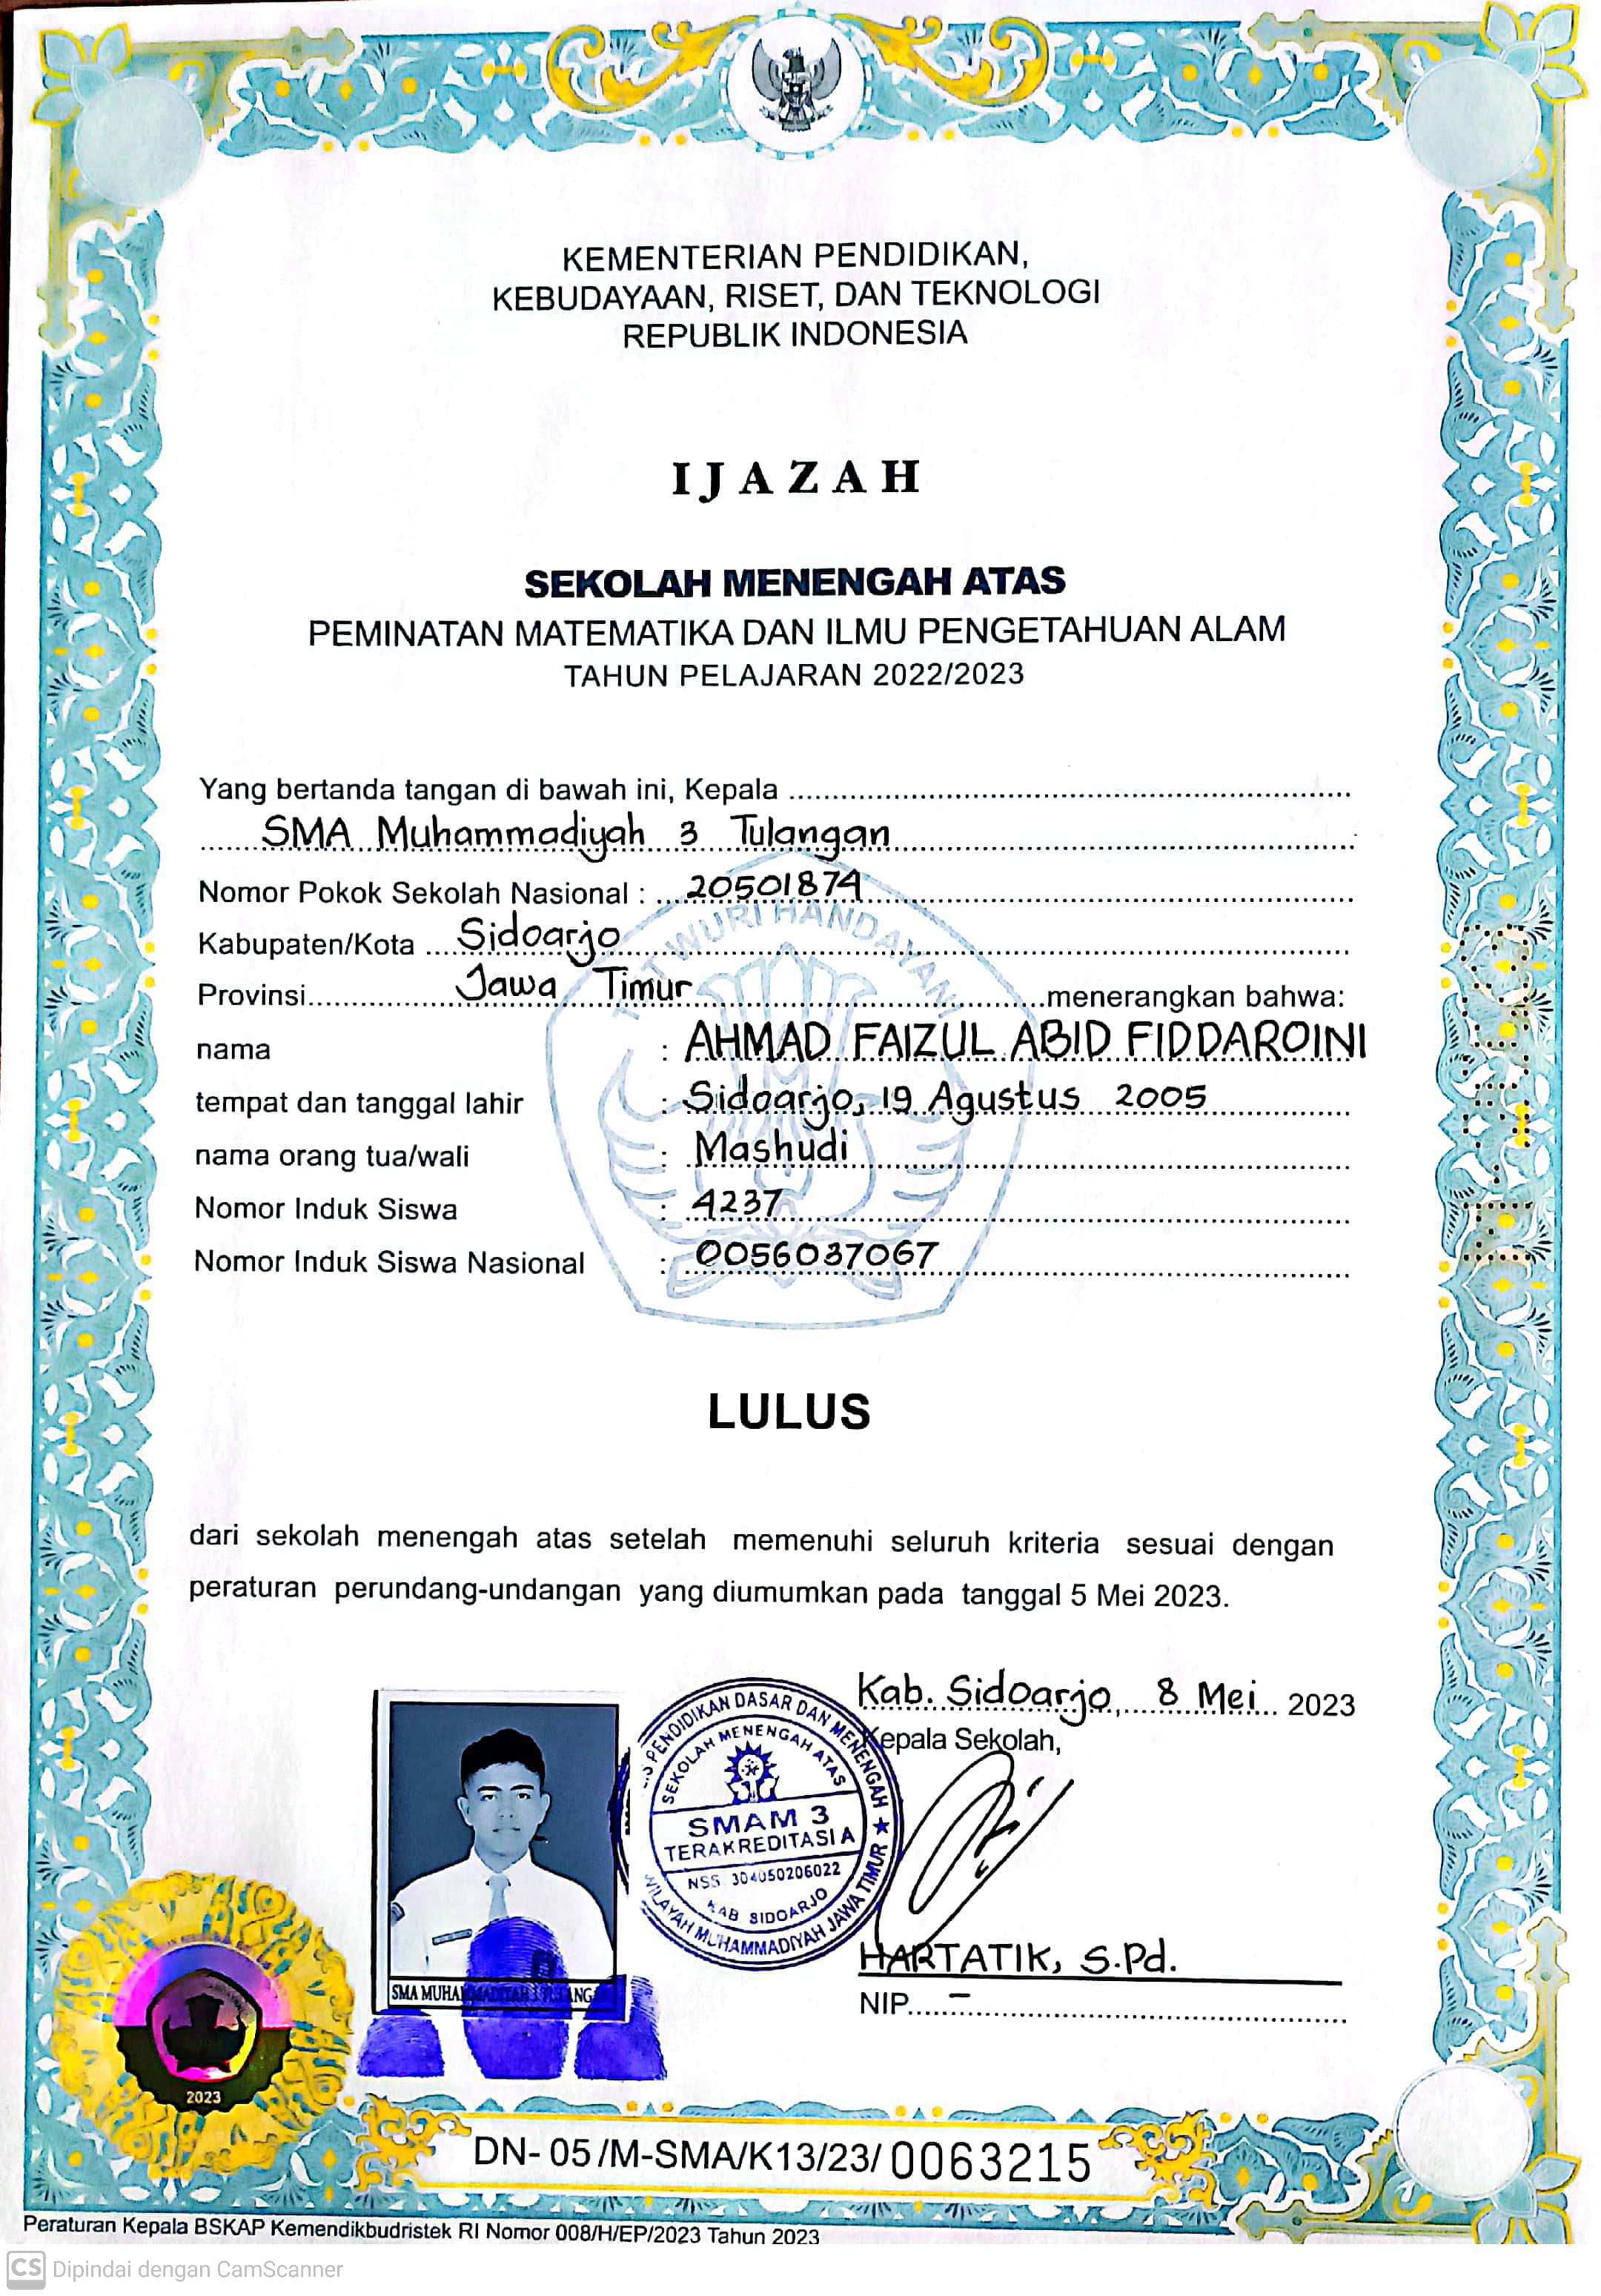 KEMENTERIAN PENDIDIKAN,
KEBUDAYAAN, RISET, DAN TEKNOLOGI
REPUBLIK INDONESIA
IJAZAH
SEKOLAH MENENGAH ATAS
PEMINATAN MATEMATIKA DAN ILMU PENGETAHUAN ALAM
TAHUN PELAJARAN 2022/2023
Yang bertanda tangan di bawah ini, Kepala
SMA Muhammadiyah 3 Tulangan
Nomor Pokok Sekolah Nasional : 20501874
TUT WURI HANDAYANI
Kabupaten/Kota Sidoarjo
Provinsi Jawa Timur menerangkan bahwa:
nama : AHMAD FAIZUL ABID FIDDAROINI
tempat dan tanggal lahir : Sidoarjo, 19 Agustus 2005
nama orang tua/wali : Mashudi
Nomor Induk Siswa : 4237
Nomor Induk Siswa Nasional : 0056037067
LULUS
dari sekolah menengah atas setelah memenuhi seluruh kriteria sesuai dengan
peraturan perundang-undangan yang diumumkan pada tanggal 5 Mei 2023.
Kab. Sidoarjo, 8 Mei 2023
Kepala Sekolah,
PENDIDIKAN DASAR DAN MENENGAH
SEKOLAH MENENGAH ATAS
SMAM 3
TERAKREDITASI A
NSS 304050206022
KAB SIDOARJO
WILAYAH MUHAMMADIYAH JAWA TIMUR
HARTATIK, S.Pd.
NIP. -
SMA MUHAMMADIYAH 3 TULANGAN
2023
DN- 05 /M-SMA/K13/23/ 0063215
Peraturan Kepala BSKAP Kemendikbudristek RI Nomor 008/H/EP/2023 Tahun 2023
CS Dipindai dengan CamScanner